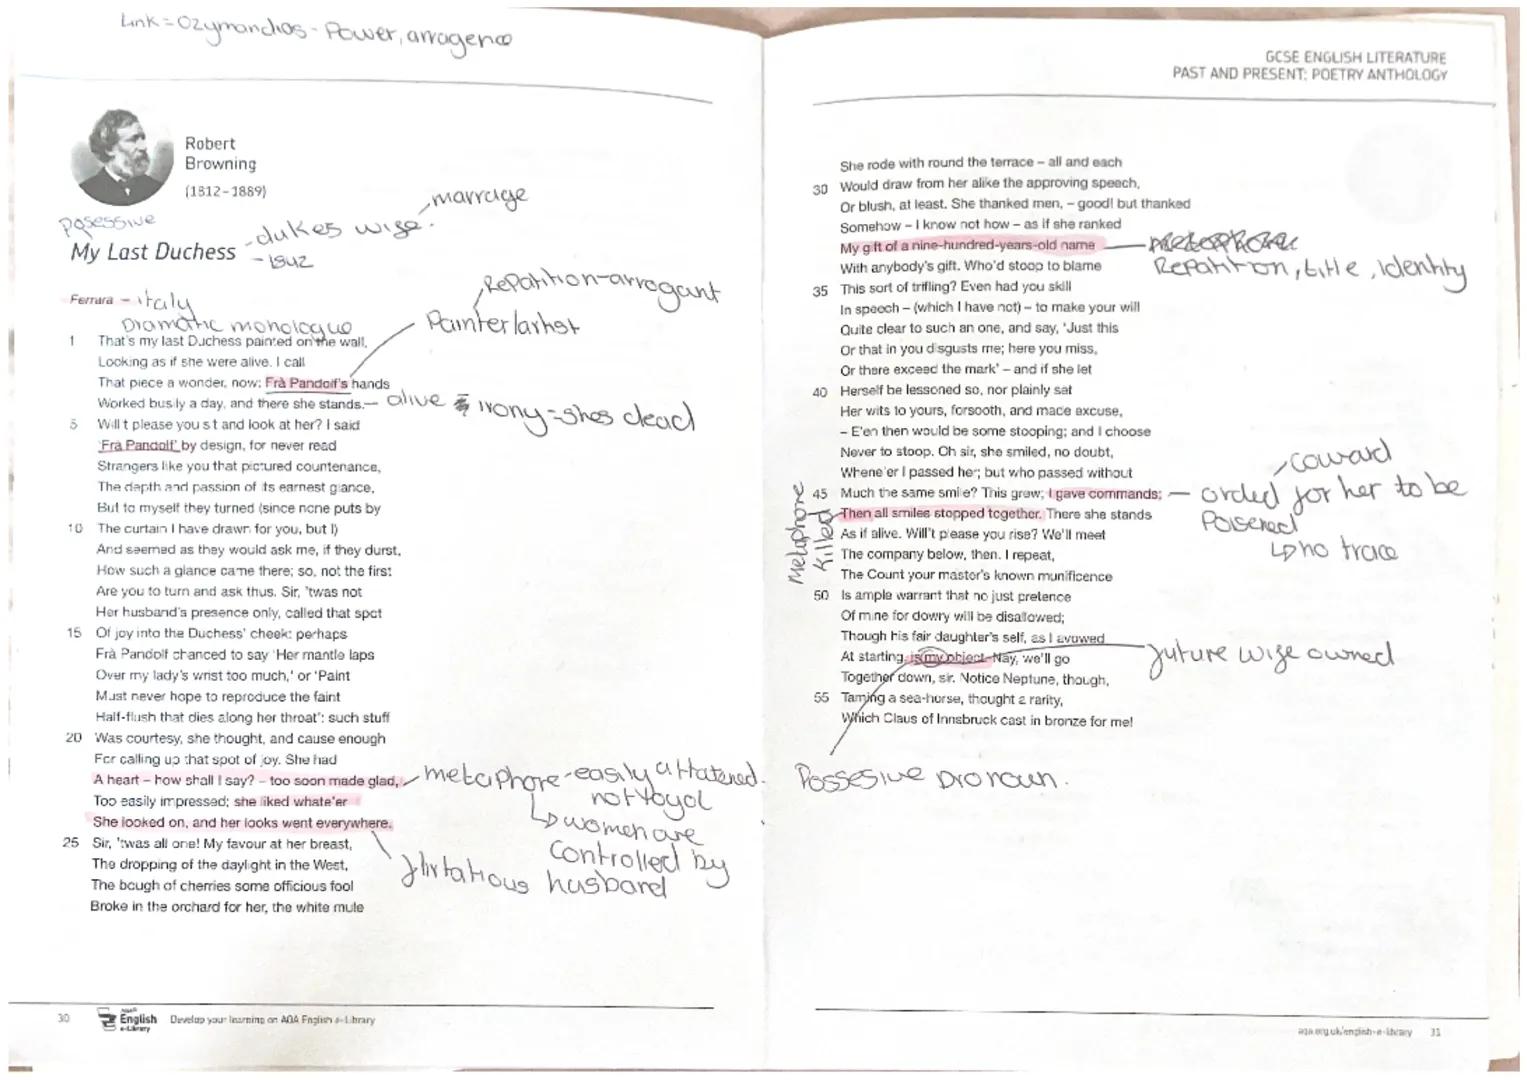 Link = Ozymandias - Power, arragence
Robert
Browning
(1812-1889)
marrage
posessive
My Last Duchess
- dukes wife.
- 1842
Ferrara
- italy
Dramatic monologue
Repatition - arrogant
Painter/artist
1 That's my last Duchess painted on the wall,
Looking as if she were alive. I call
That piece a wonder, now: Frà Pandolf's hands
Worked busily a day, and there she stands.
alive
irony = shes dead
5 Will't please you sit and look at her? I said
'Frà Pandolf' by design, for never read
Strangers like you that pictured countenance,
The depth and passion of its earnest glance,
But to myself they turned (since none puts by
10 The curtain I have drawn for you, but I)
And seemed as they would ask me, if they durst,
How such a glance came there; so, not the first
Are you to turn and ask thus. Sir, 'twas not
Her husband's presence only, called that spot
15 Of joy into the Duchess' cheek: perhaps
Frà Pandolf chanced to say 'Her mantle laps
Over my lady's wrist too much,' or 'Paint
Must never hope to reproduce the faint
Half-flush that dies along her throat': such stuff
20 Was courtesy, she thought, and cause enough
For calling up that spot of joy. She had
A heart – how shall I say? – too soon made glad,
Too easily impressed; she liked whate'er
She looked on, and her looks went everywhere.
metaphore - easily attatened.
not loyal
women are
controlled by
husband
flirtatious
25 Sir, 'twas all one! My favour at her breast,
The dropping of the daylight in the West,
The bough of cherries some officious fool
Broke in the orchard for her, the white mule
30
AQA
English
e-Library
Develop your learning on AQA English e-Library
GCSE ENGLISH LITERATURE
PAST AND PRESENT: POETRY ANTHOLOGY
She rode with round the terrace – all and each
30 Would draw from her alike the approving speech,
Or blush, at least. She thanked men, – good! but thanked
Somehow – I know not how – as if she ranked
My gift of a nine-hundred-years-old name
Repatition, title, identity
With anybody's gift. Who'd stoop to blame
35 This sort of trifling? Even had you skill
In speech – (which I have not) – to make your will
Quite clear to such an one, and say, 'Just this
Or that in you disgusts me; here you miss,
Or there exceed the mark' – and if she let
40 Herself be lessoned so, nor plainly set
Her wits to yours, forsooth, and made excuse,
– E'en then would be some stooping; and I choose
Never to stoop. Oh sir, she smiled, no doubt,
Whene'er I passed her; but who passed without
45 Much the same smile? This grew; I gave commands;
Then all smiles stopped together. There she stands
coward
orded for her to be
Poisened
no trace
Metaphore
Killed
As if alive. Will't please you rise? We'll meet
The company below, then. I repeat,
The Count your master's known munificence
50 Is ample warrant that no just pretence
Of mine for dowry will be disallowed;
Though his fair daughter's self, as I avowed
At starting, is my object. Nay, we'll go
future wife owned
Together down, sir. Notice Neptune, though,
55 Taming a sea-horse, thought a rarity,
Which Claus of Innsbruck cast in bronze for me!
Possesive pronoun.
aqa.org.uk/english-e-library 31